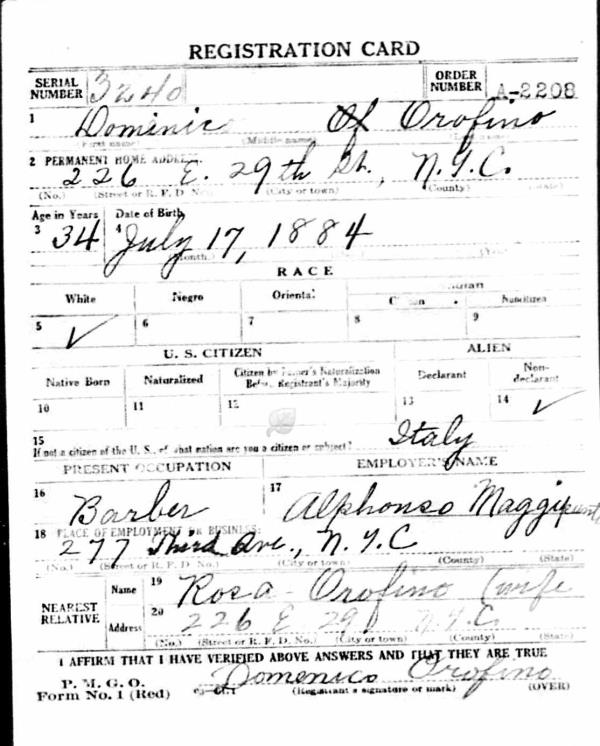 REGISTRATION CARD
SERIAL NUMBER 3240 ORDER NUMBER A-2208
1 Dominic Orofino
(First name) (Middle name)
2 PERMANENT HOME ADDRESS:
226 E. 29th St., N.Y.C.
(No.) (Street or R. F. D. No.) (City or town) (County) (State)
Age in Years Date of Birth
3 34 4 July 17, 1884
(Month.)
RACE
White Negro Oriental
5 ✓ 6 7 8 9
U. S. CITIZEN ALIEN
Native Born Naturalized Citizen by Father's Naturalization Before Registrant's Majority Declarant Non-declarant
10 11 12 13 14 ✓
15 Italy
If not a citizen of the U. S., of what nation are you a citizen or subject?
PRESENT OCCUPATION EMPLOYER'S NAME
16 Barber 17 Alphonso
18 PLACE OF EMPLOYMENT OR BUSINESS:
277 Third Ave., N.Y.C
(No.) (Street or R. F. D. No.) (City or town) (County) (State)
NEAREST RELATIVE Name 19 Rosa Orofino (wife
Address 20 226 E 29 N.Y.C
(No.) (Street or R. F. D. No.) (City or town) (County) (State)
I AFFIRM THAT I HAVE VERIFIED ABOVE ANSWERS AND THAT THEY ARE TRUE
P. M. G. O.
Form No. 1 (Red) Domenico Orofino
(Registrant's signature or mark) (OVER)